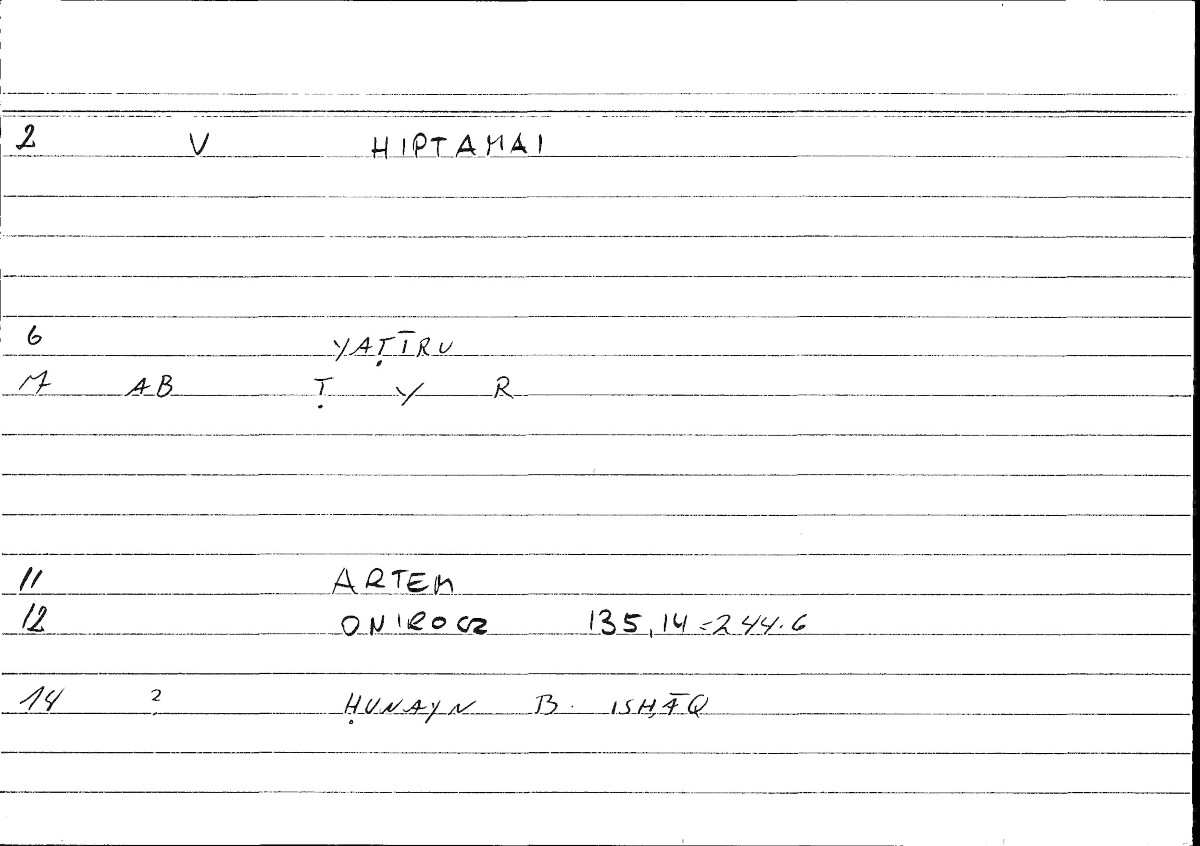 2 V HIPTAMAI
6 YAṬĪRU
7 AB Ṭ Y R
11 ARTEM
12 ONIROCR 135,14=244.6
14 ? ḤUNAYN B. ISḤĀQ